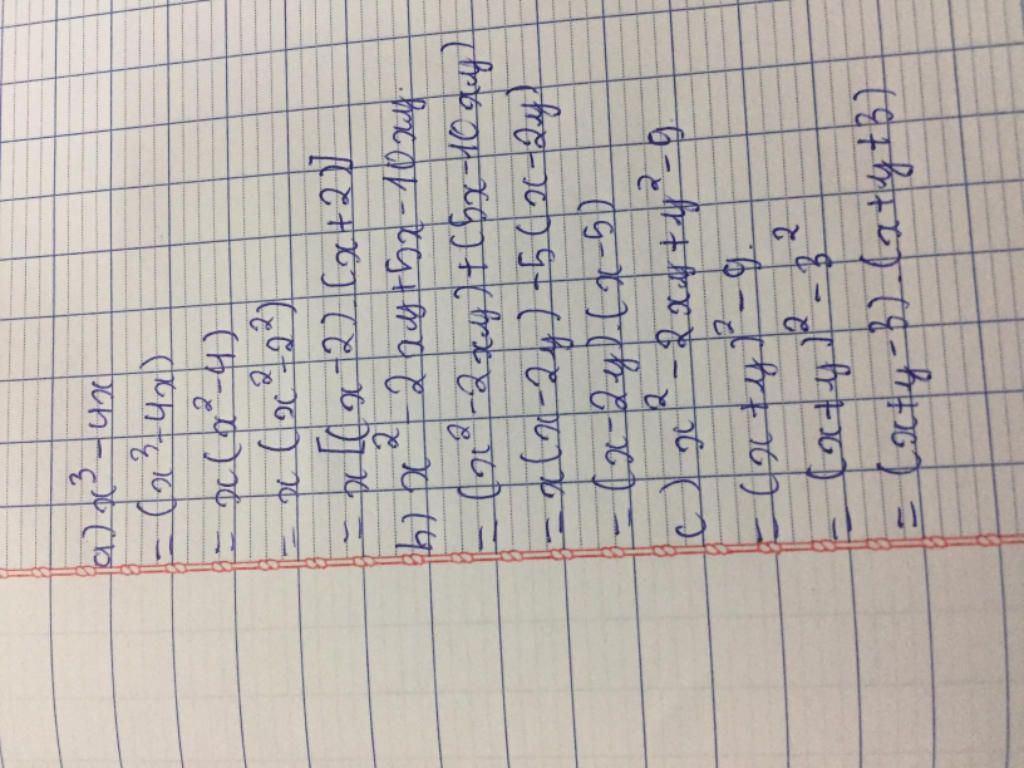 a) x³ - 4x
= (x³ - 4x)
= x(x² - 4)
= x(x² - 2²)
= x[(x - 2).(x + 2)]
b) x² - 2xy + 5x - 10xy.
= (x² - 2xy) + (5x - 10xy)
= x(x - 2y) - 5(x - 2y)
= (x - 2y).(x - 5)
c) x² - 2xy + y² - 9.
= (x + y)² - 9.
= (x + y)² - 3²
= (x + y - 3).(x + y + 3)